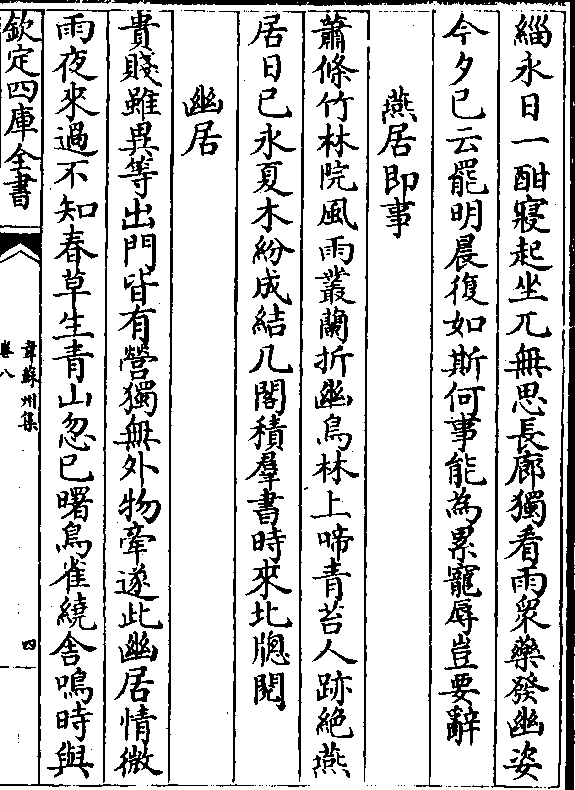 緇永日一酣寢起坐兀無思長廊獨看雨衆藥發幽姿
今夕已云罷明晨復如斯何事能為累寵辱豈要辭
燕居即事
蕭條竹林院風雨叢蘭折幽鳥林上啼青苔人跡絶燕
居日已永夏木紛成結几閣積羣書時來北牕閱
幽居
貴賤雖異等出門皆有營獨無外物牽遂此幽居情微
雨夜來過不知春草生青山忽已曙鳥雀繞舍鳴時與
欽定四庫全書
韋蘇州集
卷八
四